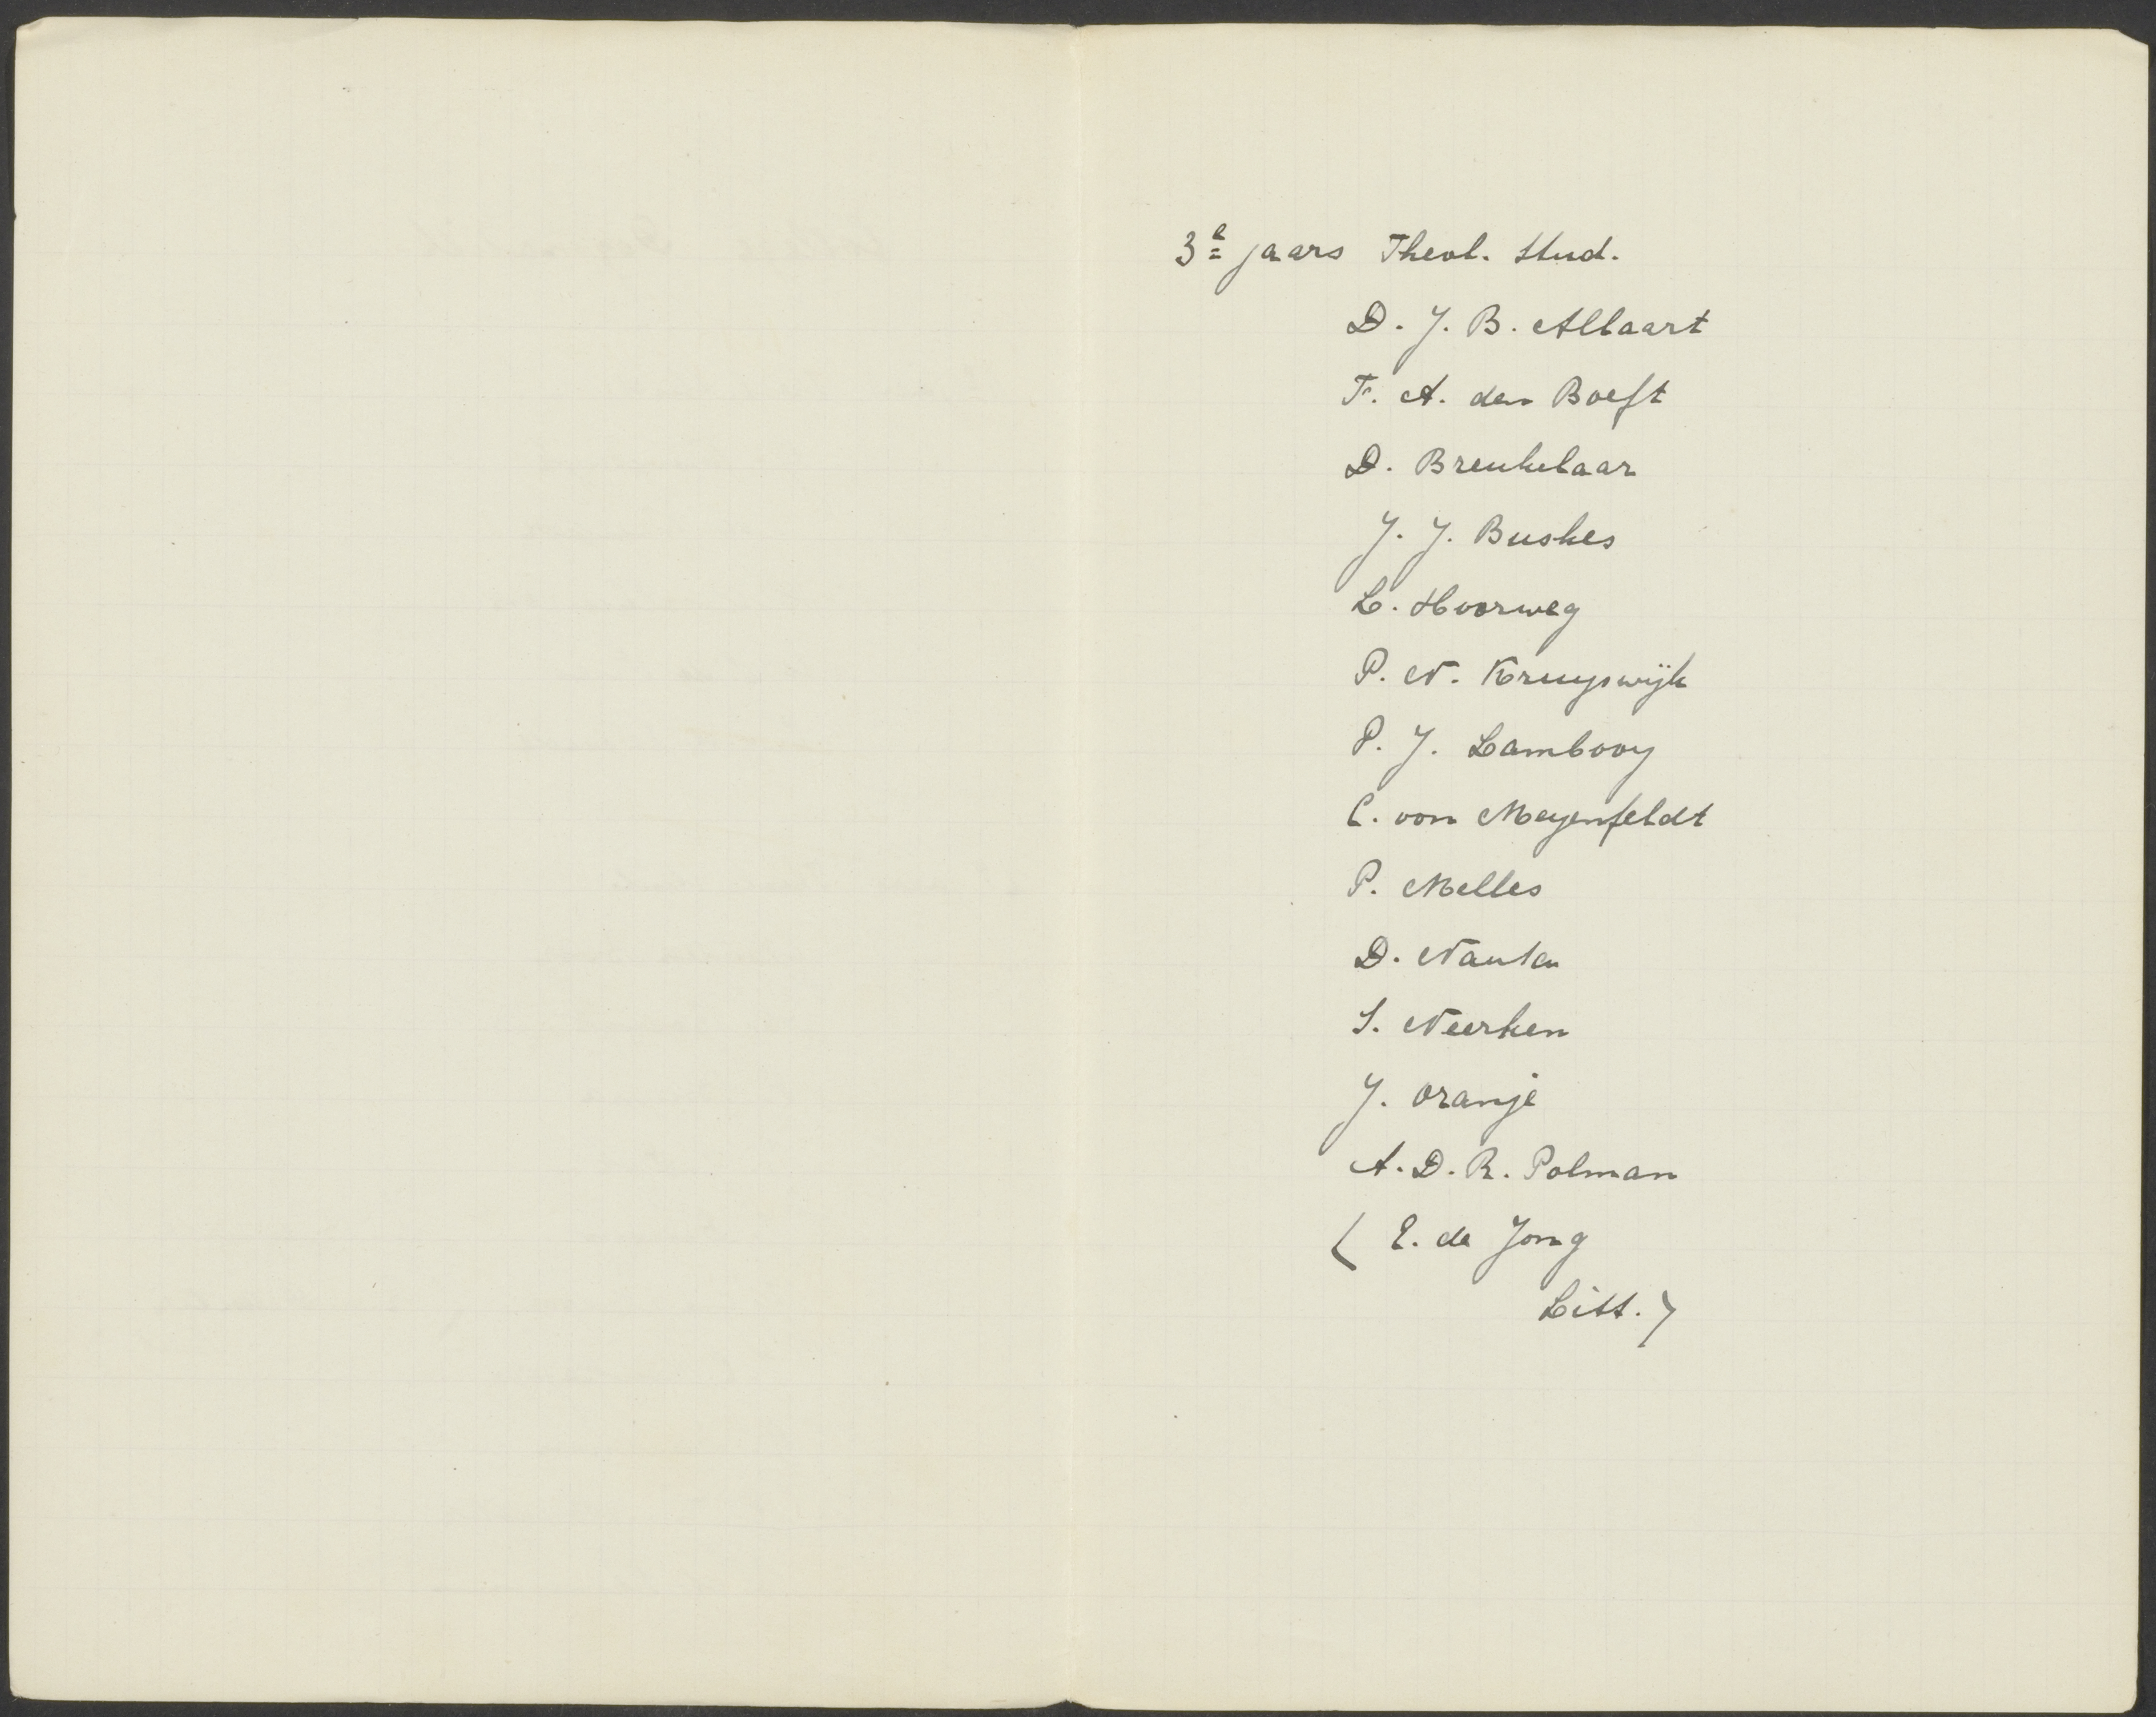 3e jaars Theol. Stud.
D. J. B. Allaart
F. A. den Boeft
D. Breukelaar
J. J. Buskes
L. Hoorweg
P. N. Kruyswijk
P. J. Lambooy
C. von Meyenfeldt
P. Melles
D. Nauta
S. Neerken
J. Oranje
A. D. R. Polman
( E. de Jong
Litt. )